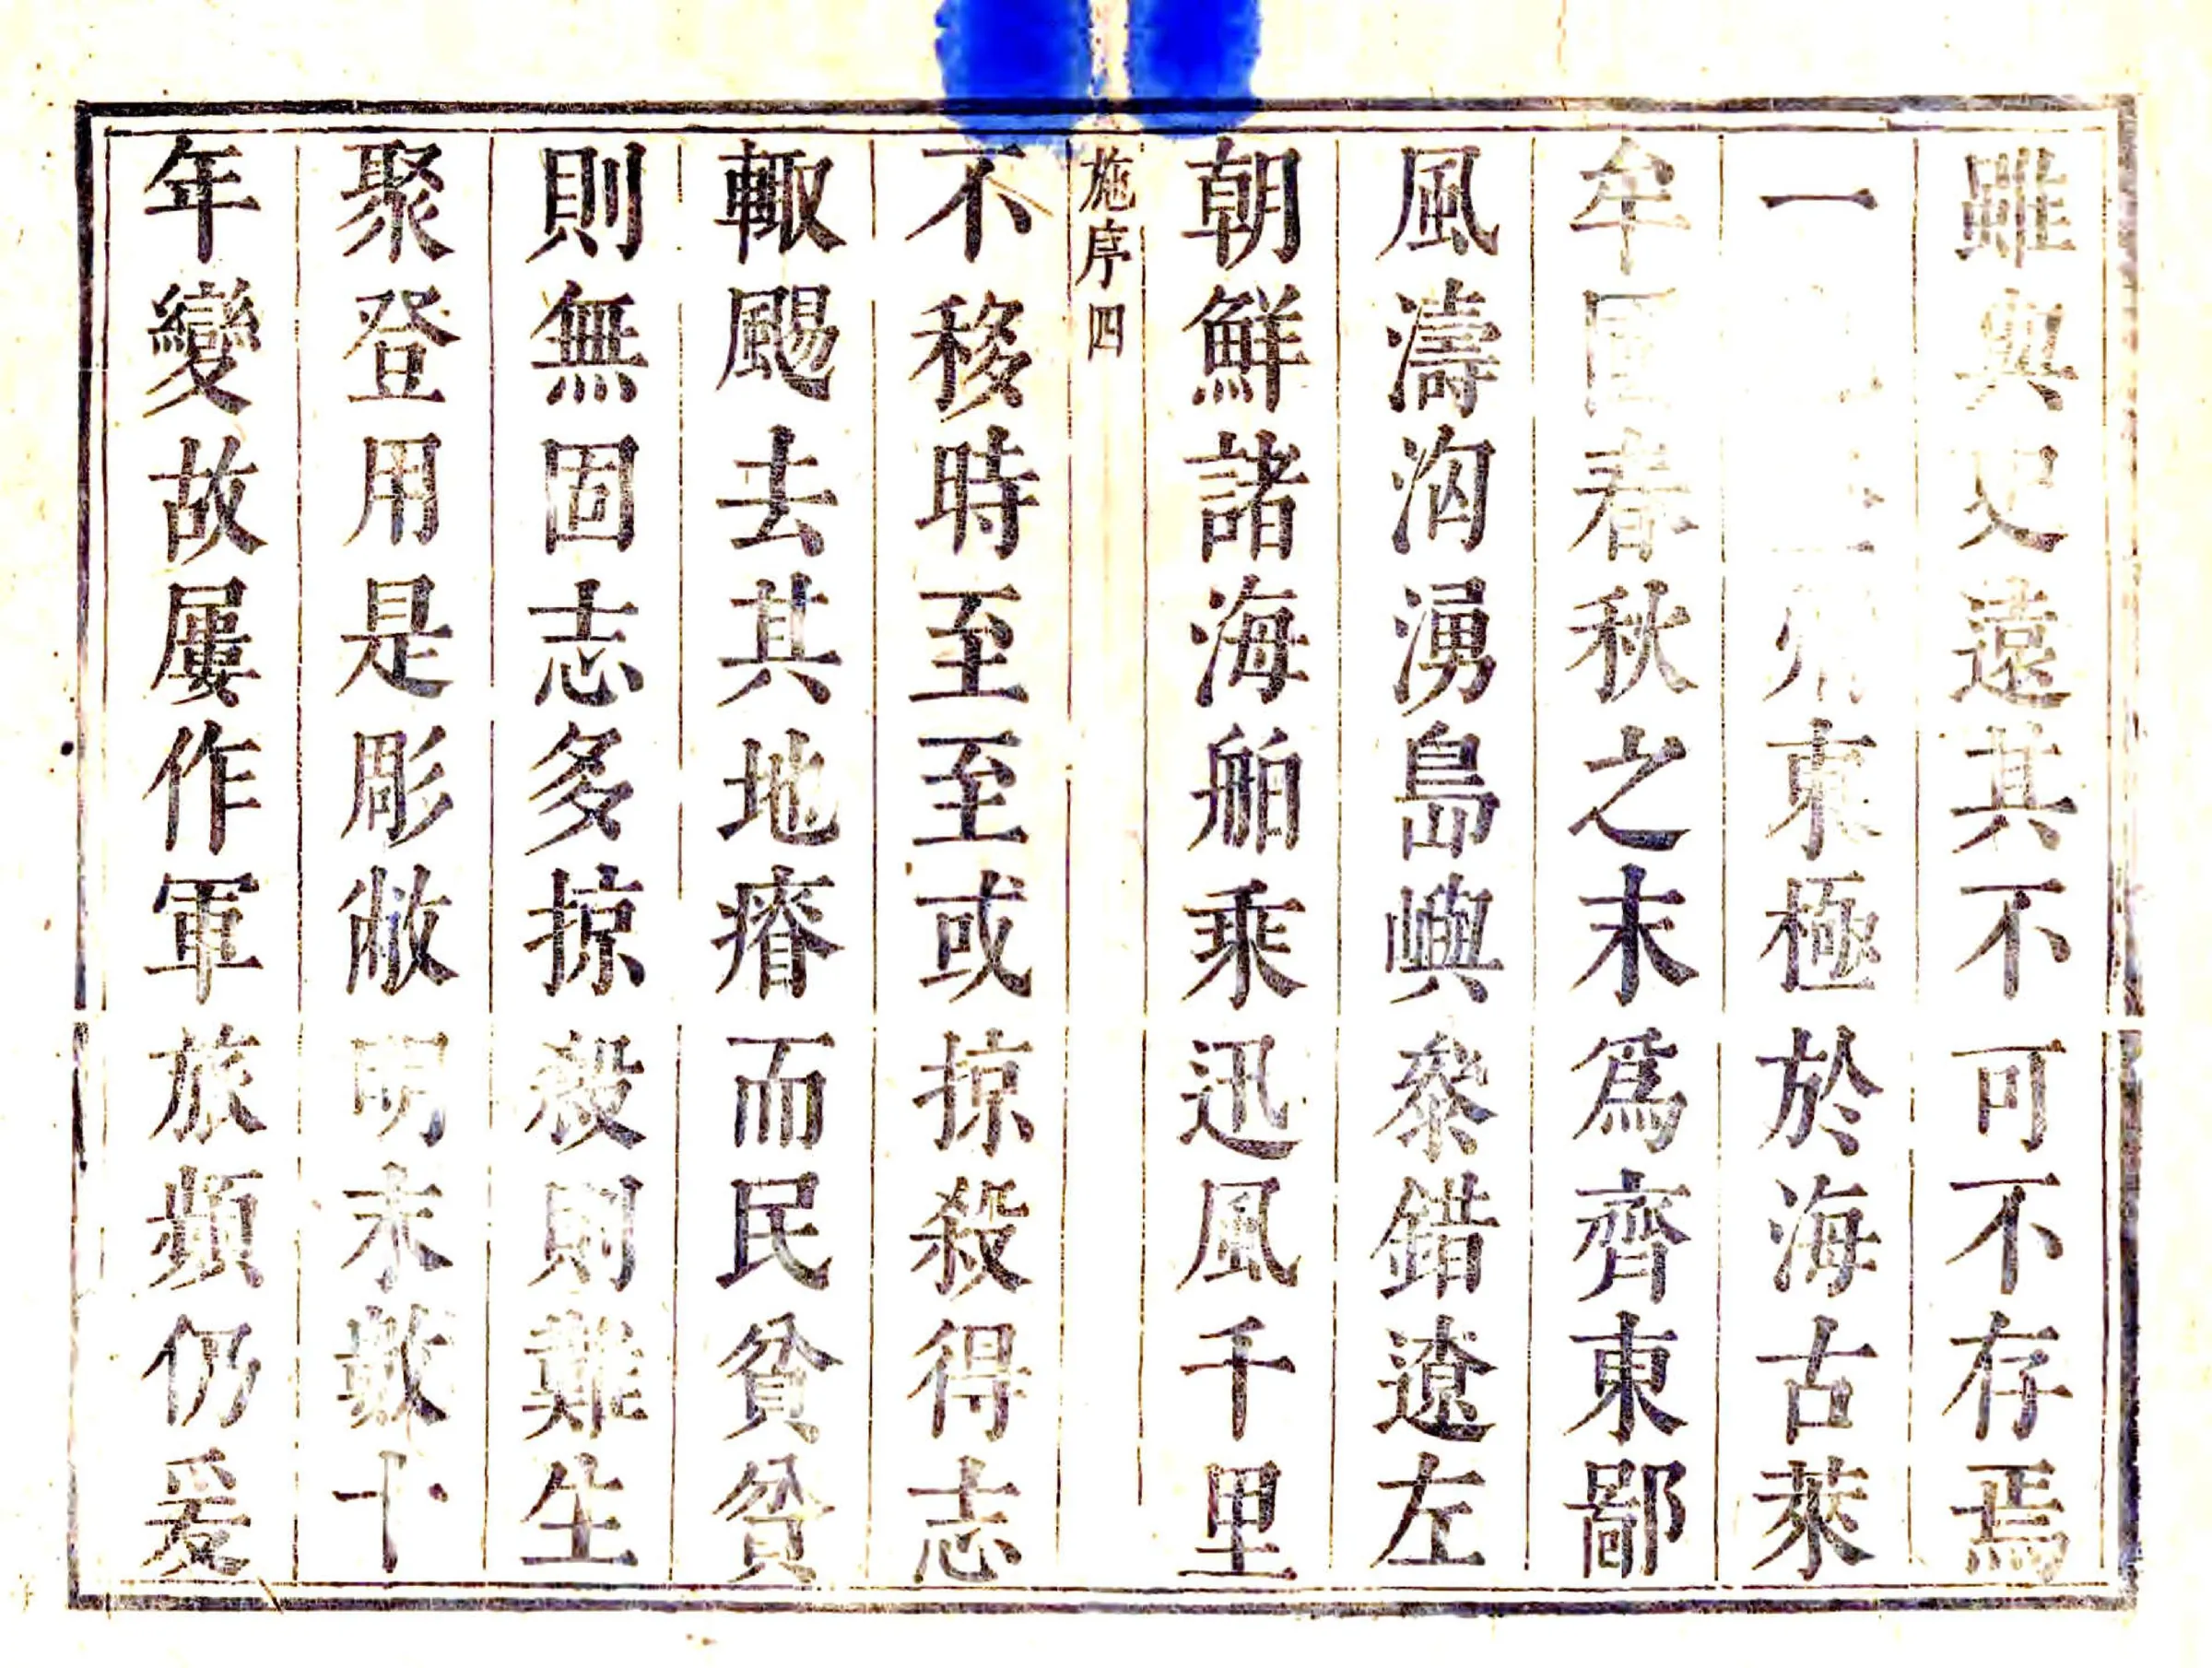 雖與史遠其不可不存焉
一東極於海古萊
牟國春秋之末爲齊東鄙
風濤洶湧島嶼叅錯遼左
朝鮮諸海舶乘迅風千里
施序四
不移時至至或掠殺得志
輙颺去其地瘠而民貧貧
則無固志多掠殺則難生
聚登用是彫敝明末數十
年變故屢作軍旅頻仍爰